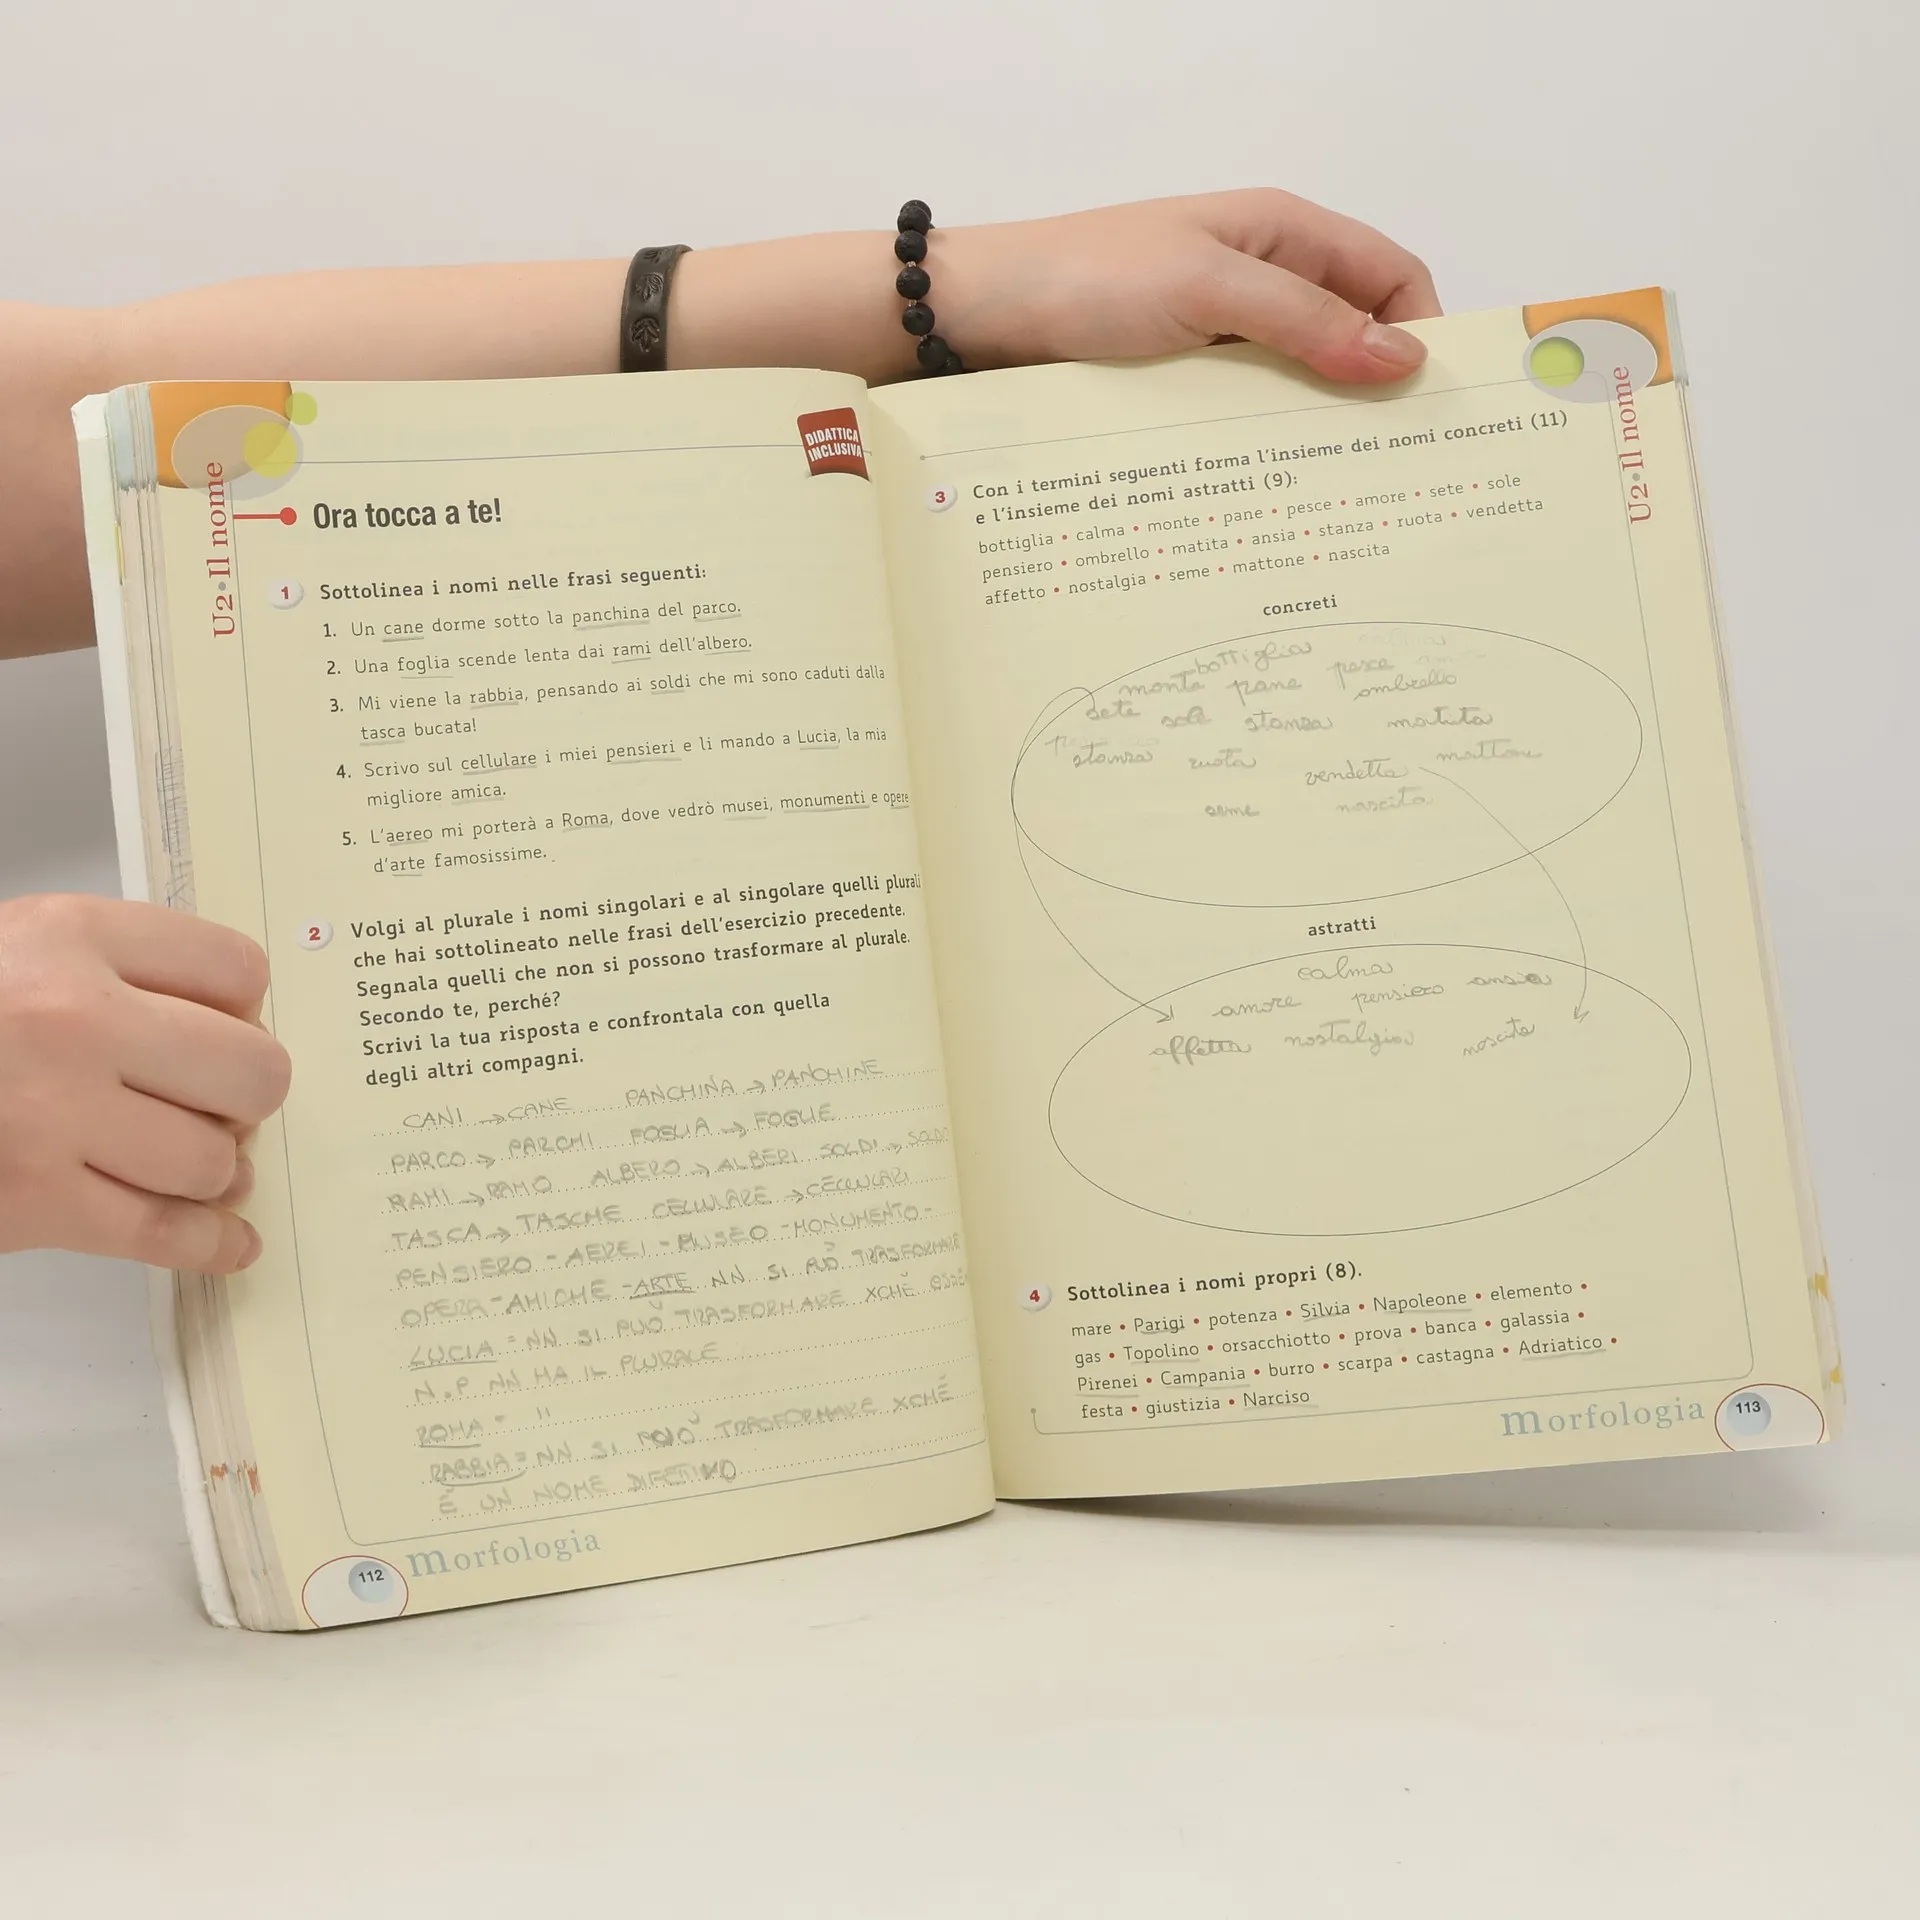 U2•Il nome
DIDATTICA
INCLUSIVA
Ora tocca a te!
1 Sottolinea i nomi nelle frasi seguenti:
1. Un cane dorme sotto la panchina del parco.
2. Una foglia scende lenta dai rami dell'albero.
3. Mi viene la rabbia, pensando ai soldi che mi sono caduti dalla
tasca bucata!
4. Scrivo sul cellulare i miei pensieri e li mando a Lucia, la mia
migliore amica.
5. L'aereo mi porterà a Roma, dove vedrò musei, monumenti e opere
d'arte famosissime.
2 Volgi al plurale i nomi singolari e al singolare quelli plurali
che hai sottolineato nelle frasi dell'esercizio precedente.
Segnala quelli che non si possono trasformare al plurale.
Secondo te, perché?
Scrivi la tua risposta e confrontala con quella
degli altri compagni.
CANI → CANE PANCHINA → PANCHINE
PARCO → PARCHI FOGLIA → FOGLIE
RAMI → RAMO ALBERO → ALBERI SOLDI → SOLDO
TASCA → TASCHE CELLULARE → CELLULARI
PENSIERO - AEREI - MUSEO - MONUMENTO -
OPERA - AMICHE - ARTE NN SI PUÒ TRASFORMARE
LUCIA = NN SI PUÒ TRASFORMARE XCHÉ
N.P NN HA IL PLURALE
ROMA = "
RABBIA = NN SI PUÒ TRASFORMARE XCHÉ
È UN NOME DIFETTIVO
112 Morfologia
U2•Il nome
3 Con i termini seguenti forma l'insieme dei nomi concreti (11)
e l'insieme dei nomi astratti (9):
bottiglia • calma • monte • pane • pesce • amore • sete • sole
pensiero • ombrello • matita • ansia • stanza • ruota • vendetta
affetto • nostalgia • seme • mattone • nascita
concreti
bottiglia
monte pane pesce ombrello
sete sole stanza matita
stanza ruota vendetta mattone
seme nascita
astratti
calma
amore pensiero ansia
affetto nostalgia nascita
4 Sottolinea i nomi propri (8).
mare • Parigi • potenza • Silvia • Napoleone • elemento •
gas • Topolino • orsacchiotto • prova • banca • galassia •
Pirenei • Campania • burro • scarpa • castagna • Adriatico •
festa • giustizia • Narciso
Morfologia 113